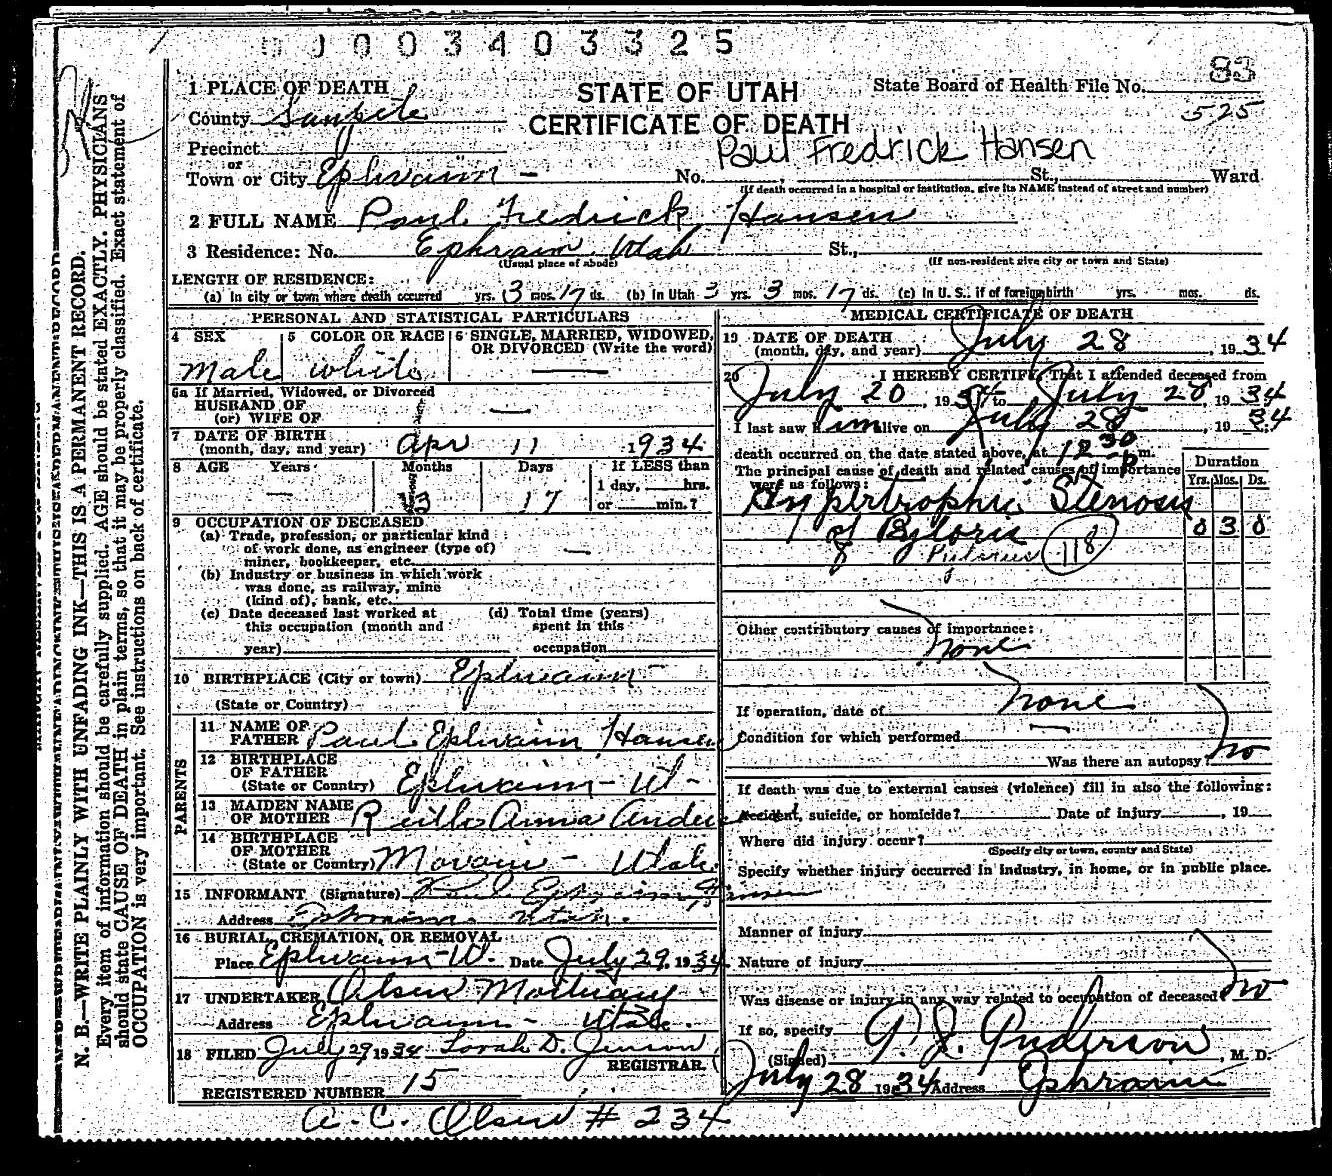 0 0 0 3 4 0 3 3 2 5
83
525
1 PLACE OF DEATH
STATE OF UTAH
State Board of Health File No.
County Sanpete
CERTIFICATE OF DEATH
Precinct
Paul Fredrick Hansen
or
Town or City Ephraim - No. , St., Ward
(If death occurred in a hospital or institution, give its NAME instead of street and number)
2 FULL NAME Paul Fredrick Hansen
3 Residence: No. Ephraim Utah St.,
(Usual place of abode) (If non-resident give city or town and State)
LENGTH OF RESIDENCE:
(a) In city or town where death occurred yrs. 3 mos. 17 ds. (b) In Utah 3 yrs. 3 mos. 17 ds. (c) In U. S., if of foreign birth yrs. mos. ds.
PERSONAL AND STATISTICAL PARTICULARS
4 SEX 5 COLOR OR RACE 6 SINGLE, MARRIED, WIDOWED, OR DIVORCED (Write the word)
Male white —
6a If Married, Widowed, or Divorced
HUSBAND OF
(or) WIFE OF —
7 DATE OF BIRTH
(month, day, and year) Apr 11 1934
8 AGE Years Months Days If LESS than
1 day, hrs.
— 3 17 or min.?
9 OCCUPATION OF DECEASED
(a) Trade, profession, or particular kind
of work done, as engineer (type of)
miner, bookkeeper, etc. —
(b) Industry or business in which work
was done, as railway, mine
(kind of), bank, etc.
(c) Date deceased last worked at (d) Total time (years)
this occupation (month and spent in this
year) occupation
10 BIRTHPLACE (City or town) Ephraim
(State or Country)
PARENTS
11 NAME OF
FATHER Paul Ephraim Hansen
12 BIRTHPLACE
OF FATHER
(State or Country) Ephraim - Ut -
13 MAIDEN NAME
OF MOTHER Ruth Anna
14 BIRTHPLACE
OF MOTHER
(State or Country) Moroni - Utah
15 INFORMANT (Signature) Paul Ephraim Hansen
Address Ephraim Utah.
16 BURIAL, CREMATION, OR REMOVAL
Place Ephraim Ut. Date July 29, 1934
17 UNDERTAKER Olsen Mortuary
Address Ephraim - Utah.
18 FILED July 29 1934 Sarah D. Jenson
REGISTRAR.
REGISTERED NUMBER 15
A. C. Olsen # 234
MEDICAL CERTIFICATE OF DEATH
19 DATE OF DEATH
(month, day, and year) July 28, 1934
20 I HEREBY CERTIFY, That I attended deceased from
July 20, 1934 to July 28, 1934
I last saw him alive on July 28, 1934
death occurred on the date stated above, at 12 30 p m.
The principal cause of death and related causes of importance
were as follows:
Duration
Yrs. Mos. Ds.
Hypertrophic Stenosis
0 3 0
of Pyloris
Pylorus 118
Other contributory causes of importance:
none
If operation, date of none
Condition for which performed —
Was there an autopsy? no
If death was due to external causes (violence) fill in also the following:
Accident, suicide, or homicide? Date of injury , 19
Where did injury occur?
(Specify city or town, county and State)
Specify whether injury occurred in industry, in home, or in public place.
Manner of injury
Nature of injury
Was disease or injury in any way related to occupation of deceased? no
If so, specify
(Signed) P. J. Anderson, M. D.
July 28 1934 Address Ephraim
N. B.—WRITE PLAINLY WITH UNFADING INK—THIS IS A PERMANENT RECORD.
Every item of information should be carefully supplied. AGE should be stated EXACTLY. PHYSICIANS
should state CAUSE OF DEATH in plain terms, so that it may be properly classified. Exact statement of
OCCUPATION is very important. See instructions on back of certificate.